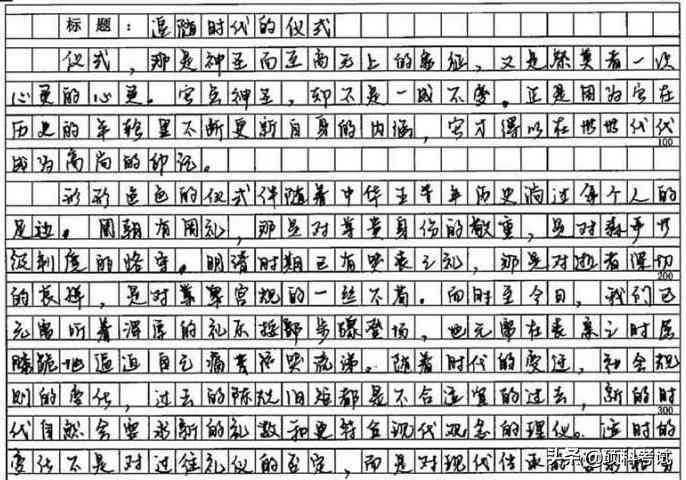 标题：追随时代的仪式
仪式，那是神圣而至高无上的象征，又是祭奠者一次
心灵的心灵。它虽神圣，却不是一成不变。正是因为它在
历史的年轮里不断更新自身的内涵，它才得以在世世代代
100
成为高尚的印记。
形形色色的仪式伴随着中华五千年历史淌过每个人的
足边。周朝有周礼，那是对尊贵身份的敬重，是对森严
制度的恪守。明清时期已有哭丧之礼，那是对逝者深切
200
的哀悼，是对繁冗宫规的一丝不苟。而时至今日，我们已
无需听着浑厚的礼乐按部步骤登场，也无需在丧亲之时屈
膝跪地逼迫自己痛哭流涕。随着时代的变迁，社会规
则的变化，过去的陈规旧俗都是不合适宜的过去，新的时
300
代自然会要求新的礼数和更符合现代观念的理仪。这时的
变化不是对过往礼仪的否定，而是对现代传承的
头条@硕科考试